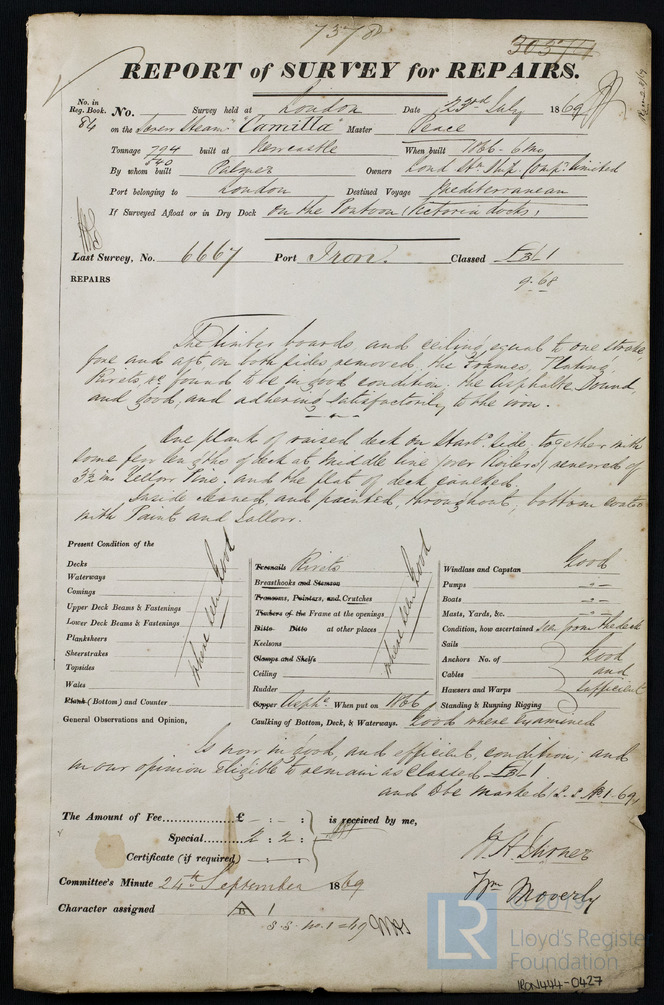 7378
30571
REPORT of SURVEY for REPAIRS.
No. in Reg. Book. No. Survey held at London Date 23rd July 1869
84 on the Screw Steam "Camilla" Master Peace
Tonnage 794 built at Newcastle When built 1866 - 6 mo
540
By whom built Palmer Owners Lond Stm Ship Comp: limited
Port belonging to London Destined Voyage Mediterranean
If Surveyed Afloat or in Dry Dock on the Pontoon (Victoria docks)
Last Survey, No. 6667 Port Iron. Classed 1
9.68
REPAIRS
The limber boards and ceiling equal to one strake
fore and aft, on both sides removed, the Frames, Plating,
Rivets &c found to be in good condition. the asphalte Sound
and good, and adhering satisfactorily to the iron.
One plank of raised deck on Starbd side, together with
some few lengths of deck at middle line (over Boilers) renewed of
3½ in Yellow Pine. and the flat of deck caulked.
Inside cleaned and painted, throughout, bottom coated
with Paint and Tallow.
Present Condition of the
Decks
Waterways
Comings
Upper Deck Beams & Fastenings
Lower Deck Beams & Fastenings
Planksheers
Sheerstrakes
Topsides
Wales
Plank (Bottom) and Counter
where seen Good
Treenails Rivets
Breasthooks and Stemson
Transoms, Pointers, and Crutches
Timbers of the Frame at the openings
Ditto Ditto at other places
Keelsons
Clamps and Shelfs
Ceiling
Rudder
Copper Asphe. When put on 1866
where seen Good
Windlass and Capstan Good
Pumps "
Boats "
Masts, Yards, &c. "
Condition, how ascertained Seen from the deck
Sails
Anchors No. of
Cables
Hausers and Warps
Standing & Running Rigging
Good and Sufficient
General Observations and Opinion, Caulking of Bottom, Deck, & Waterways. Good where Examined
Is now in good, and efficient, condition; and
in our opinion Eligible to remain as Classed 1
and to be marked S.S. No 1-69,
The Amount of Fee £ - : - : is received by me,
Special 2 : 2 :
Certificate (if required) - : - :
Committee's Minute 24th September 1869
Character assigned A 1
S.S. No. 1-69
Wm Moverly
© 201
LR
Lloyd's Register
Foundation
IRON444-0427